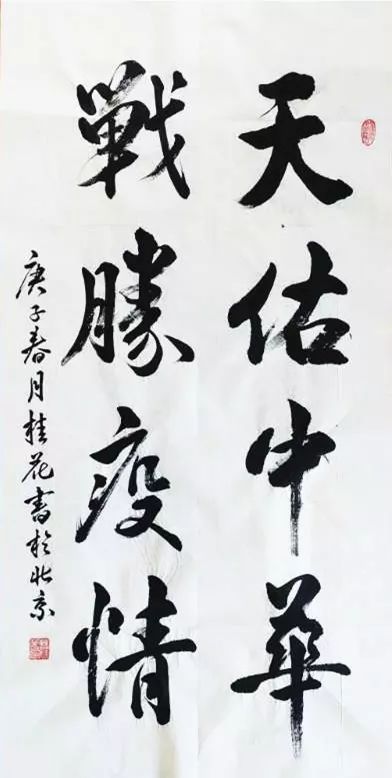 天佑中華
戰勝疫情
庚子春月桂花書於北京